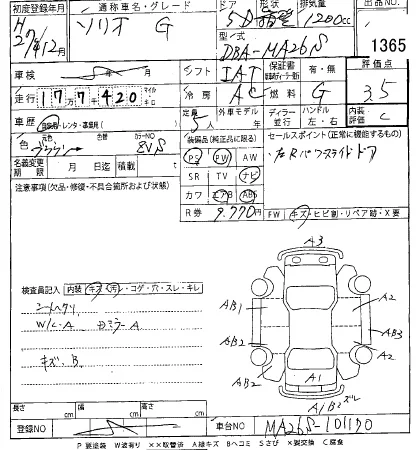 初度登録年月 通称車名・グレード ドア 形状 排気量 出品NO
H27年12月 ソリオ G 5D 1200cc
型式 DBA-MA26S 1365
車検 年 月 シフト IAT 保証書 有・無 評価点
走行 177420 マイル キロ 冷房 AC 燃料 G 3.5
車歴 自家用・レンタ・事業用 定員 5人 外車モデル年 ディーラー 並行 ハンドル 左・右 内装 C
色 ブラウン 色替 カラーNO ZVS 装備品(純正品に限る) セールスポイント(正常に機能するもの)
PS PW AW 左Rパワースライドドア
名義変更期限 月 日迄 積載 t SR TV ナビ
注意事項(欠品・修復・不具合箇所および状態) カワ エアB ABS
R券 9,770円 FW キズ・ヒビ割・リペア跡・X要
A3
検査員記入 内装 キズ・汚・コゲ・穴・スレ・キレ
AB1 A2
シートヘタリ AB3
W/C・A AB2 A2
キズ、B AB2 A1
A1B2ズレ
長さ cm 幅 cm 高さ cm
登録NO 車台NO MA26S-101170
P 要塗装 W波有り ××取替済 A線キズ Bヘコミ Sさび X要交換 C腐食